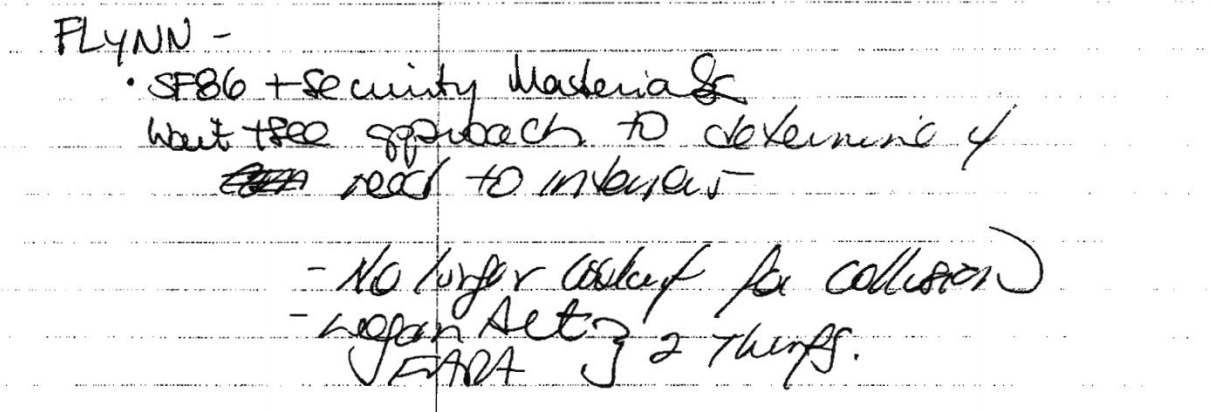 FLYNN -
• SF86 + Security Materials
Want + see approach to determine if
need to interview
- No longer for collusion)
- Logan Act } 2 Things.
FARA